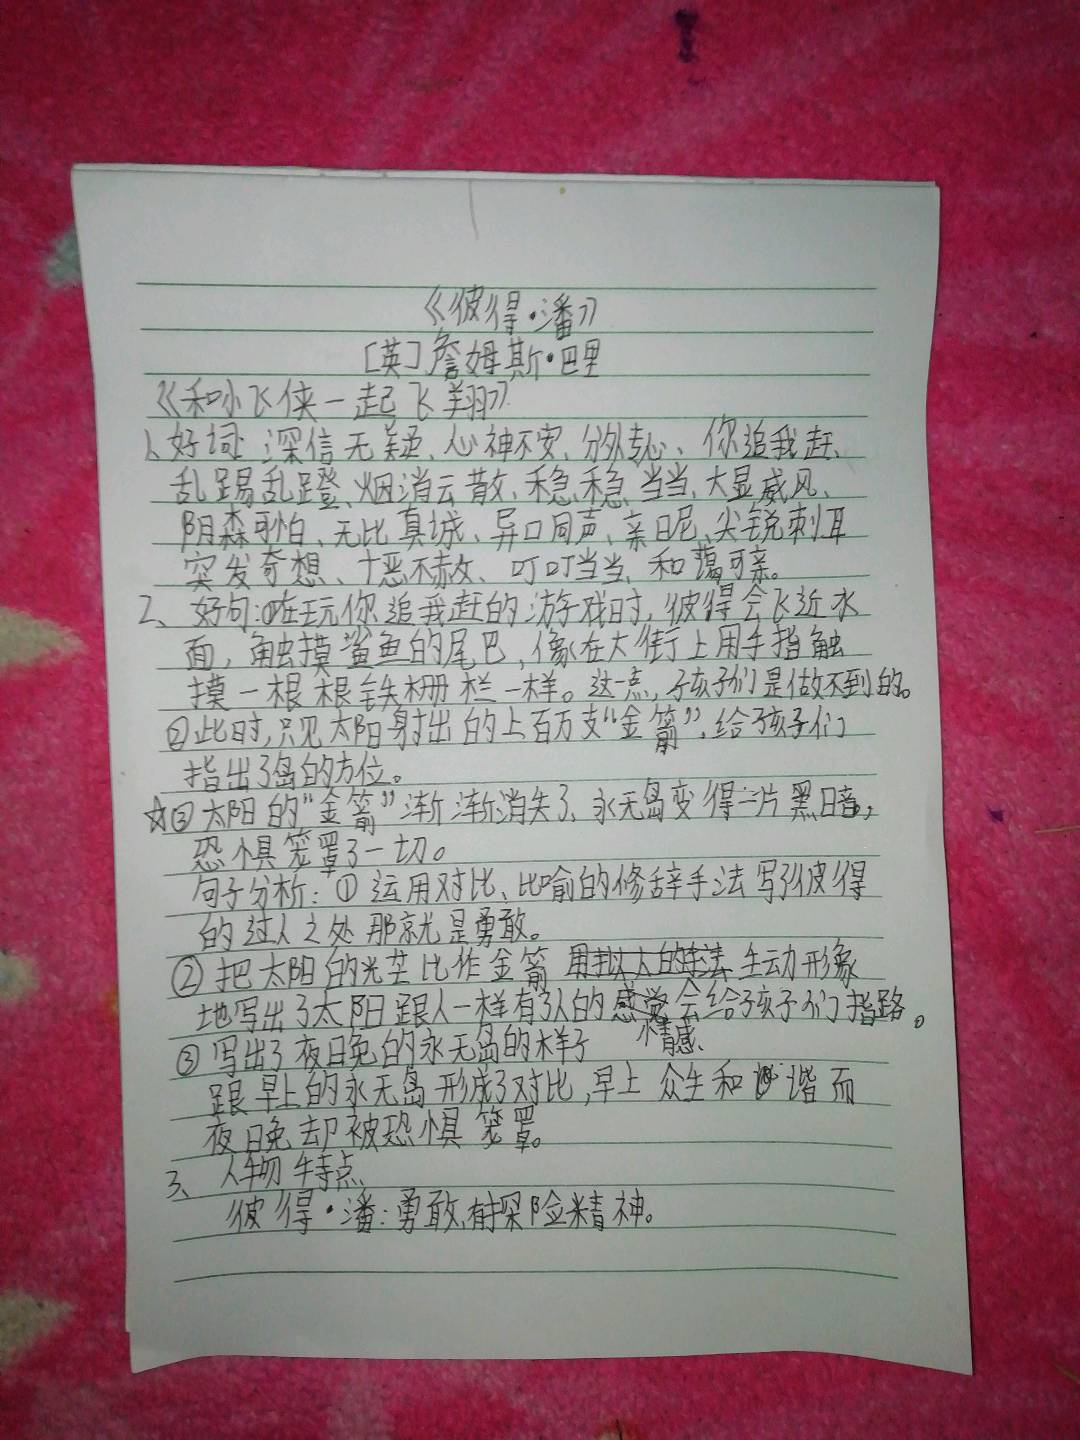 《彼得·潘》
[英]詹姆斯·巴里
《和小飞侠一起飞翔》
1、好词:深信无疑、心神不安、分外专心、你追我赶、
乱踢乱蹬、烟消云散、稳稳当当、大显威风、
阴森可怕、无比真诚、异口同声、亲昵、尖锐刺耳
突发奇想、十恶不赦、叮叮当当、和蔼可亲。
2、好句:①在玩你追我赶的游戏时,彼得会飞近水
面,触摸鲨鱼的尾巴,像在大街上用手指触
摸一根根铁栅栏一样。这一点,孩子们是做不到的。
②此时,只见太阳射出的上百万支“金箭”,给孩子们
指出了岛的方位。
☆③太阳的“金箭”渐渐消失了,永无岛变得一片黑暗,
恐惧笼罩了一切。
句子分析:①运用对比、比喻的修辞手法写了彼得
的过人之处那就是勇敢。
②把太阳的光芒比作金箭用拟人的手法生动形象
地写出了太阳跟人一样有了人的感觉会给孩子们指路。
情感、
③写出了夜晚的永无岛的样子
跟早上的永无岛形成了对比,早上众生和谐而
夜晚却被恐惧笼罩。
3、人物特点、
彼得·潘:勇敢,有探险精神。